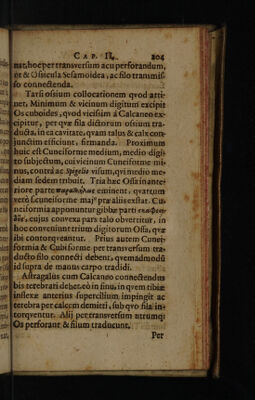 CAP. II. 204
nat, hoc per transversum acu perforandum,
ut & Ossicula Sesamoidea, ac filo transmis-
so connectenda.
Tarsi ossium collocationem qvod atti-
net, Minimum & vicinum digitum excipit
Os cuboides, qvod vicissim à Calcaneo ex-
cipitur, per qvæ fila dictorum ossium tra-
ducta, in ea cavitate, qvam talus & calx con-
junctim efficiunt, firmanda. Proximum
huic est Cuneiforme medium, medio digi-
to subjectum, cui vicinum Cuneiforme mi-
nus, contrà ac Spigelio visum, qvi medio me-
diam sedem tribuit. Tria hæc Ossa in ante-
riore parte eminent, qvarum
verò Cuneiforme majus præ aliis exstat. Cu-
neiformia apponuntur gibbæ parti
cujus convexa pars talo obvertitur, in
hoc conveniunt trium digitorum Ossa, qvæ
ibi contorqveantur. Prius autem Cunei-
formia & Cubiforme per transversum tra-
ducto filo connecti debent, qvemadmodũ
id supra de manus carpo tradidi.
Astragalus cum Calcaneo connectendus
bis terebrari debet, eò in sinu, in qvem tibiæ
inflexæ anterius supercilium impingit ac
terebra per calcem demitti, sub qvo fila in-
torqventur. Alij per transversum utrumqꝫ
Os perforant & filum traducunt.
Per